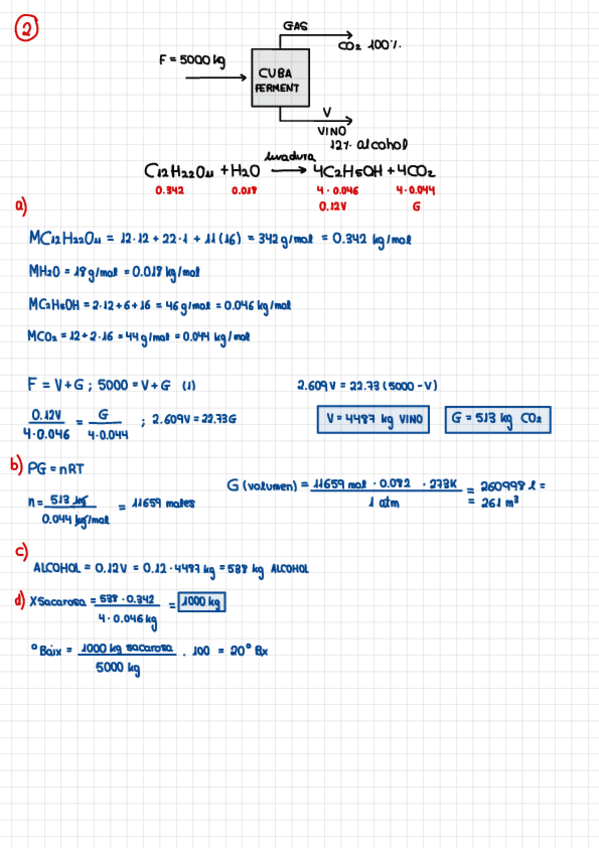 2
GAS
CO2 100%
F = 5000 kg
CUBA
FERMENT
V
VINO
12% alcohol
levadura
C12H22O11 + H2O → 4C2H5OH + 4CO2
0.342 0.018 4·0.046 4·0.044
0.12V G
a)
MC12H22O11 = 12·12 + 22·1 + 11(16) = 342 g/mol = 0.342 kg/mol
MH2O = 18 g/mol = 0.018 kg/mol
MC2H5OH = 2·12+6+16 = 46 g/mol = 0.046 kg/mol
MCO2 = 12+2·16 = 44 g/mol = 0.044 kg/mol
F = V+G ; 5000 = V+G (1)
0.12V / 4·0.046 = G / 4·0.044 ; 2.609V = 22.73G
2.609V = 22.73(5000-V)
V = 4487 kg VINO
G = 513 kg CO2
b) PG = nRT
n = 513 kg / 0.044 kg/mol = 11659 moles
G (volumen) = 11659 mol · 0.082 · 273K / 1 atm = 260998 l =
= 261 m³
c)
ALCOHOL = 0.12V = 0.12 · 4487 kg = 538 kg ALCOHOL
d) XSacarosa = 538 · 0.342 / 4 · 0.046 kg = 1000 kg
°Baix = 1000 kg sacarosa / 5000 kg · 100 = 20° Bx